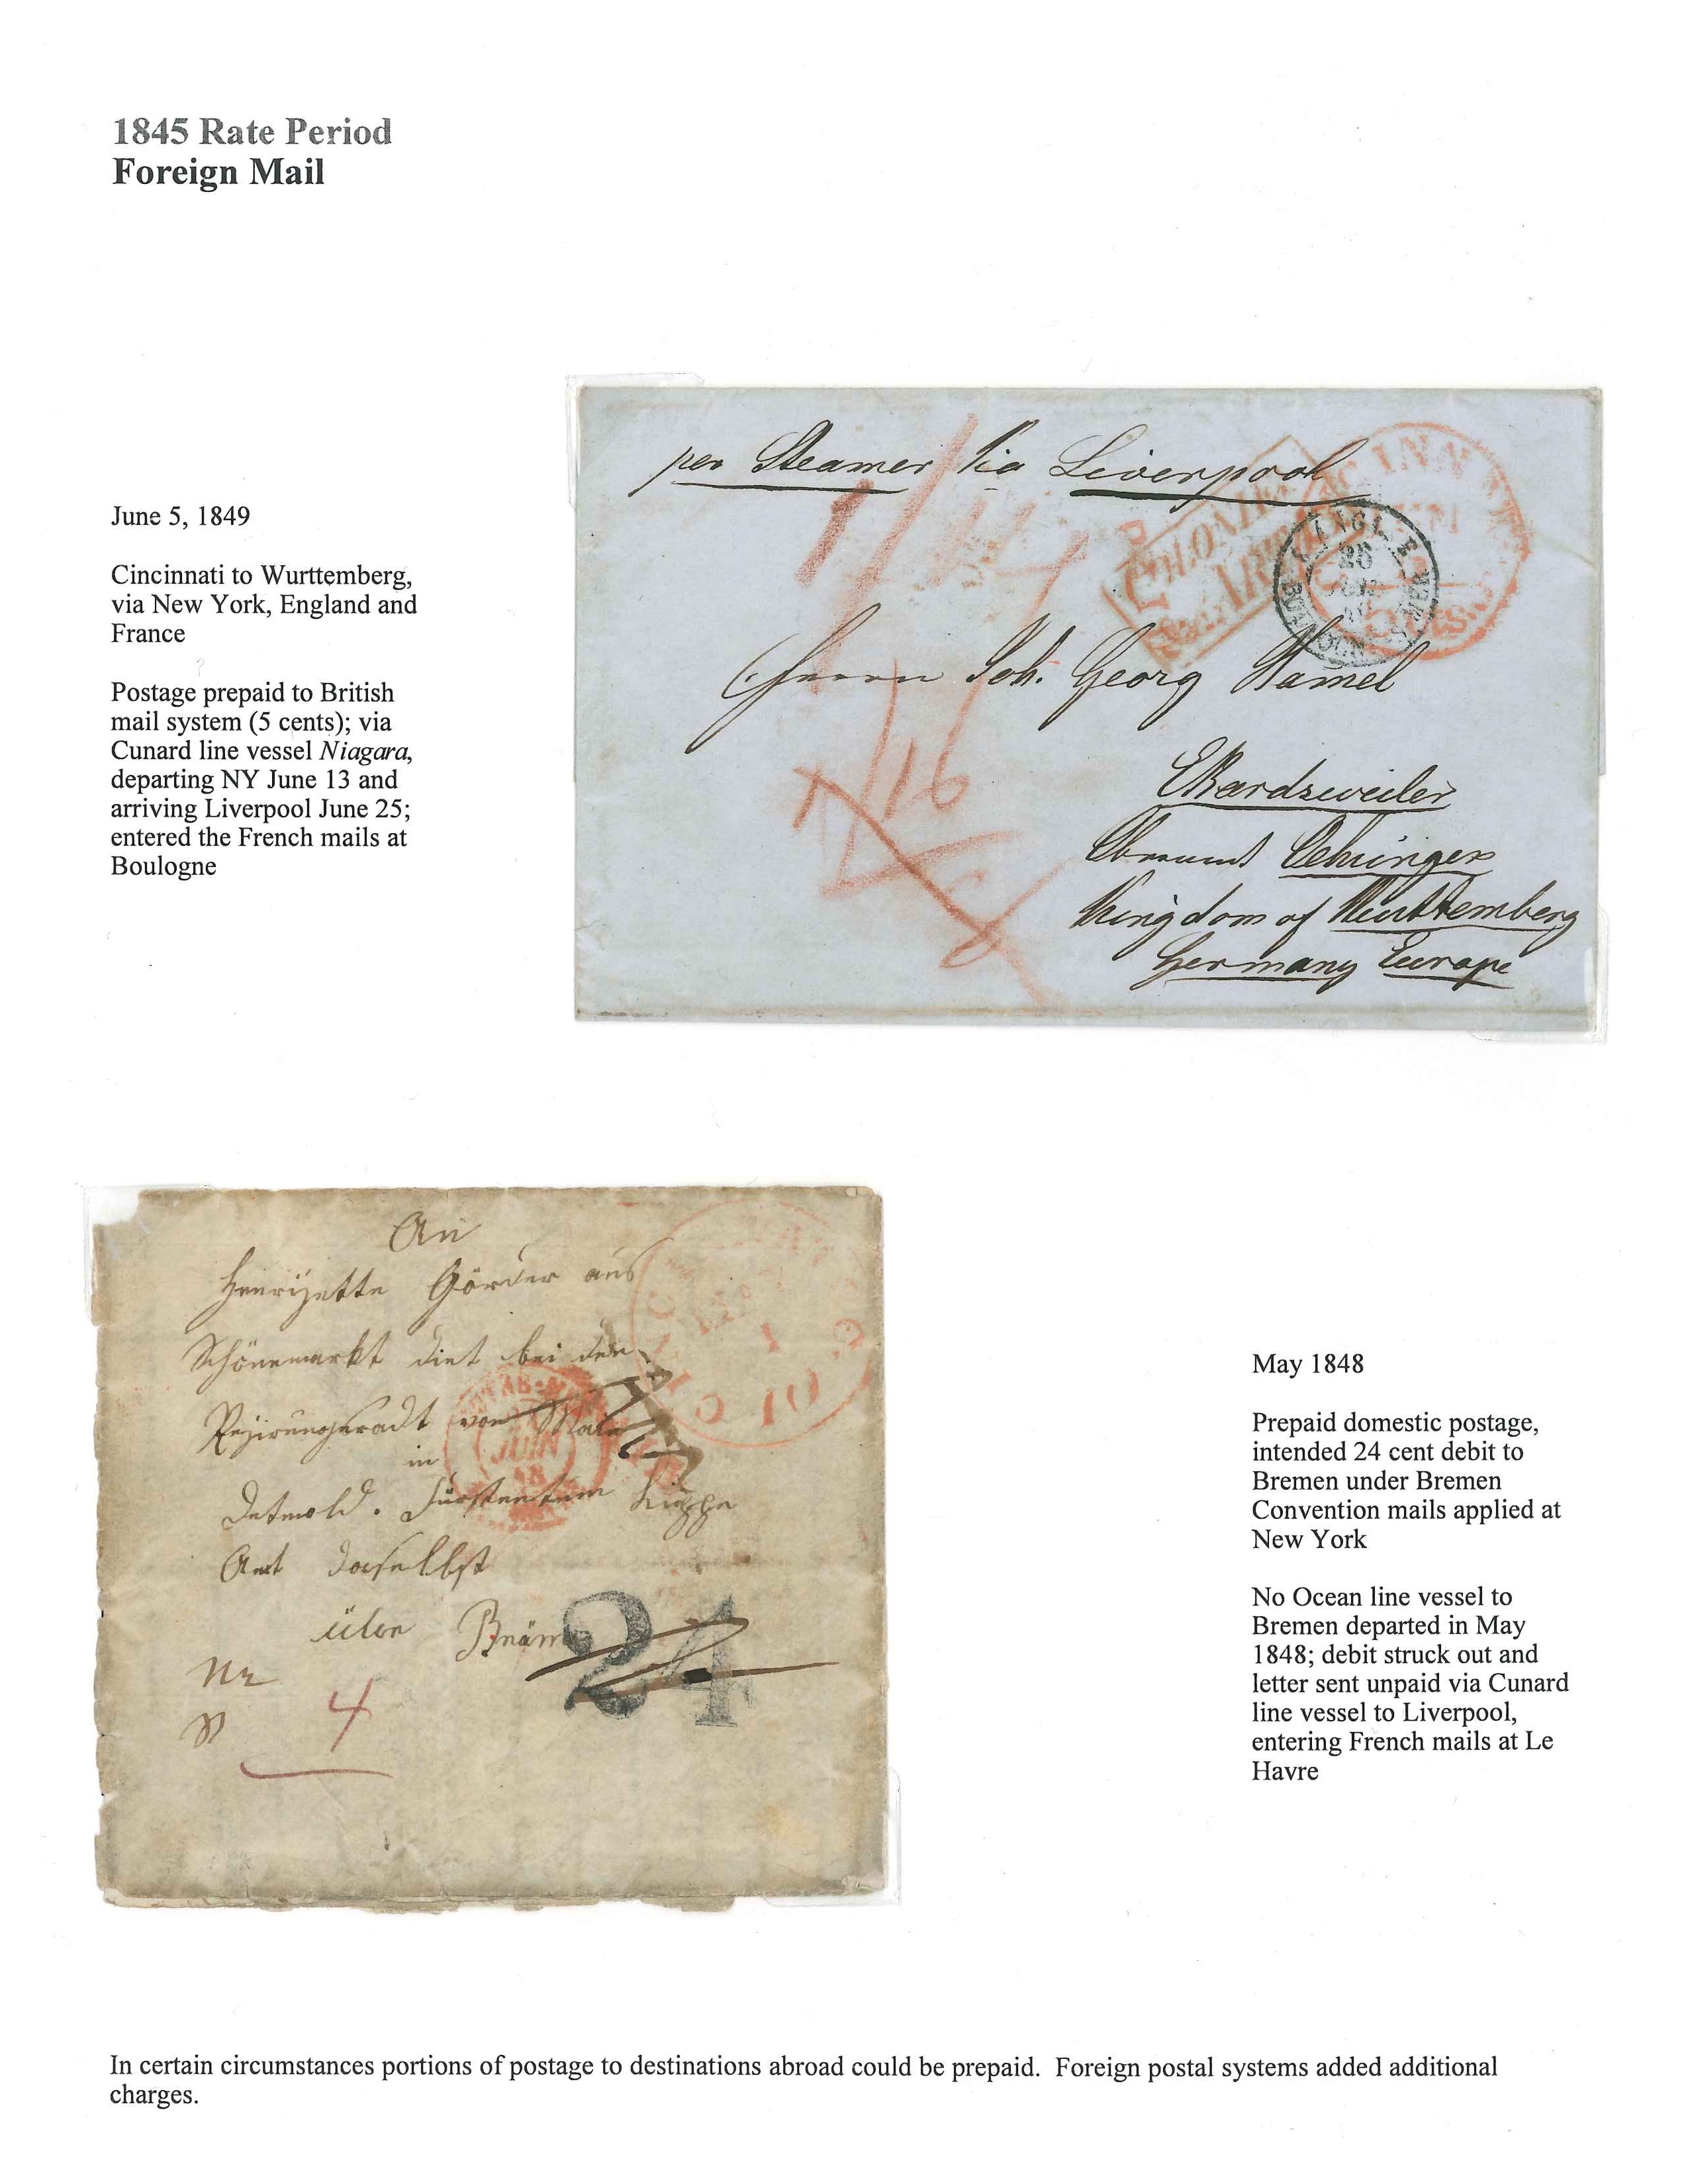 1845 Rate Period
Foreign Mail
June 5, 1849
Cincinnati to Wurttemberg,
via New York, England and
France
Postage prepaid to British
mail system (5 cents); via
Cunard line vessel Niagara,
departing NY June 13 and
arriving Liverpool June 25;
entered the French mails at
Boulogne
per Steamer via Liverpool
COLONIES
26
Herrn Joh. Georg Hamel
16
Kingdom of Wurttemberg
Germany Europe
An
Henrijette Görder aus
Schönemarkt dint bei den
in
JUIN
48
Detmold. Fürstentum Lippe
Amt daselbst
über
24
4
May 1848
Prepaid domestic postage,
intended 24 cent debit to
Bremen under Bremen
Convention mails applied at
New York
No Ocean line vessel to
Bremen departed in May
1848; debit struck out and
letter sent unpaid via Cunard
line vessel to Liverpool,
entering French mails at Le
Havre
In certain circumstances portions of postage to destinations abroad could be prepaid.  Foreign postal systems added additional
charges.